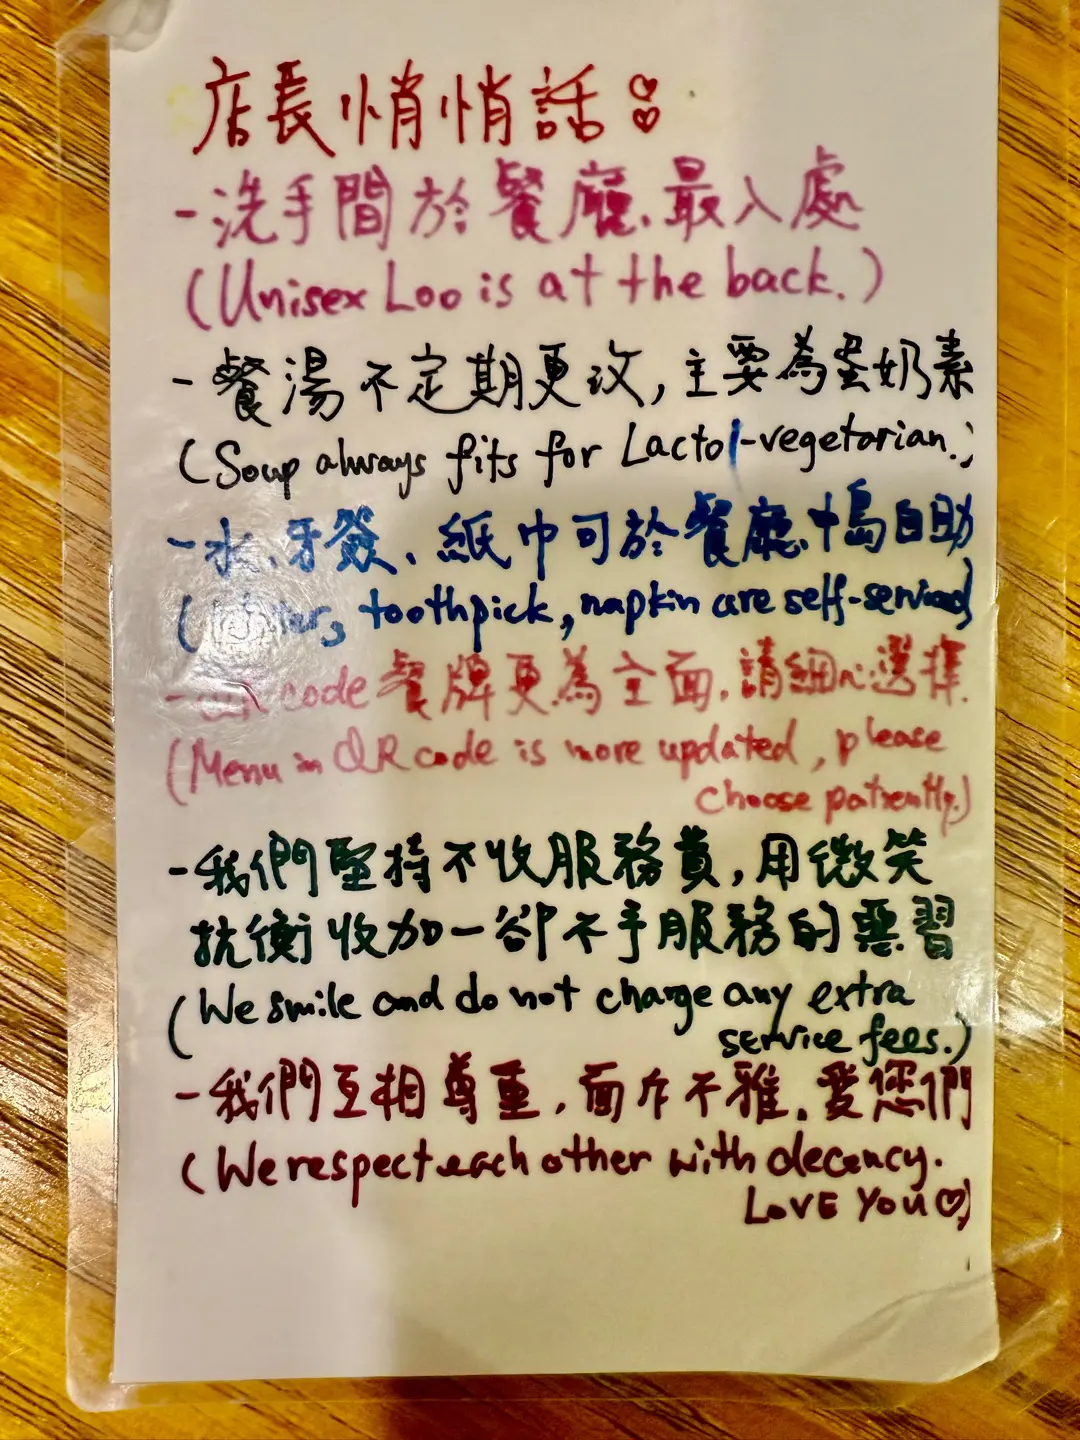 店長悄悄話
-洗手間於餐廳最入處
(Unisex Loo is at the back.)
-餐湯不定期更改,主要為蛋奶素
(Soup always fits for Lacto-vegetarian.)
-水、牙籤、紙巾可於餐廳中島自助
toothpick, napkin are self-serviced)
-QR code 餐牌更為全面,請細心選擇.
(Menu in QR code is more updated, please
choose patiently.)
-我們堅持不收服務費,用微笑
抗衡收加一卻不予服務的惡習
(We smile and do not charge any extra
service fees.)
-我們互相尊重,面斥不雅.愛您們
(We respect each other with decency.
LOVE YOU♡)